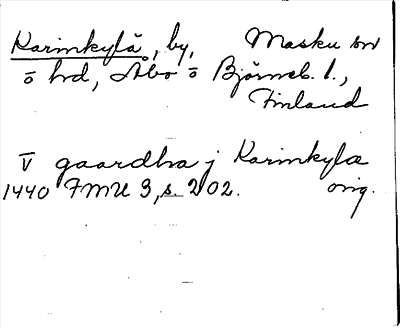 Karinkylä, by, Masku sn
o hd, Åbo o Björneb. l.,
Finland
V gaardha j Karinkylæ
1440 FMU 3, s. 202. orig.